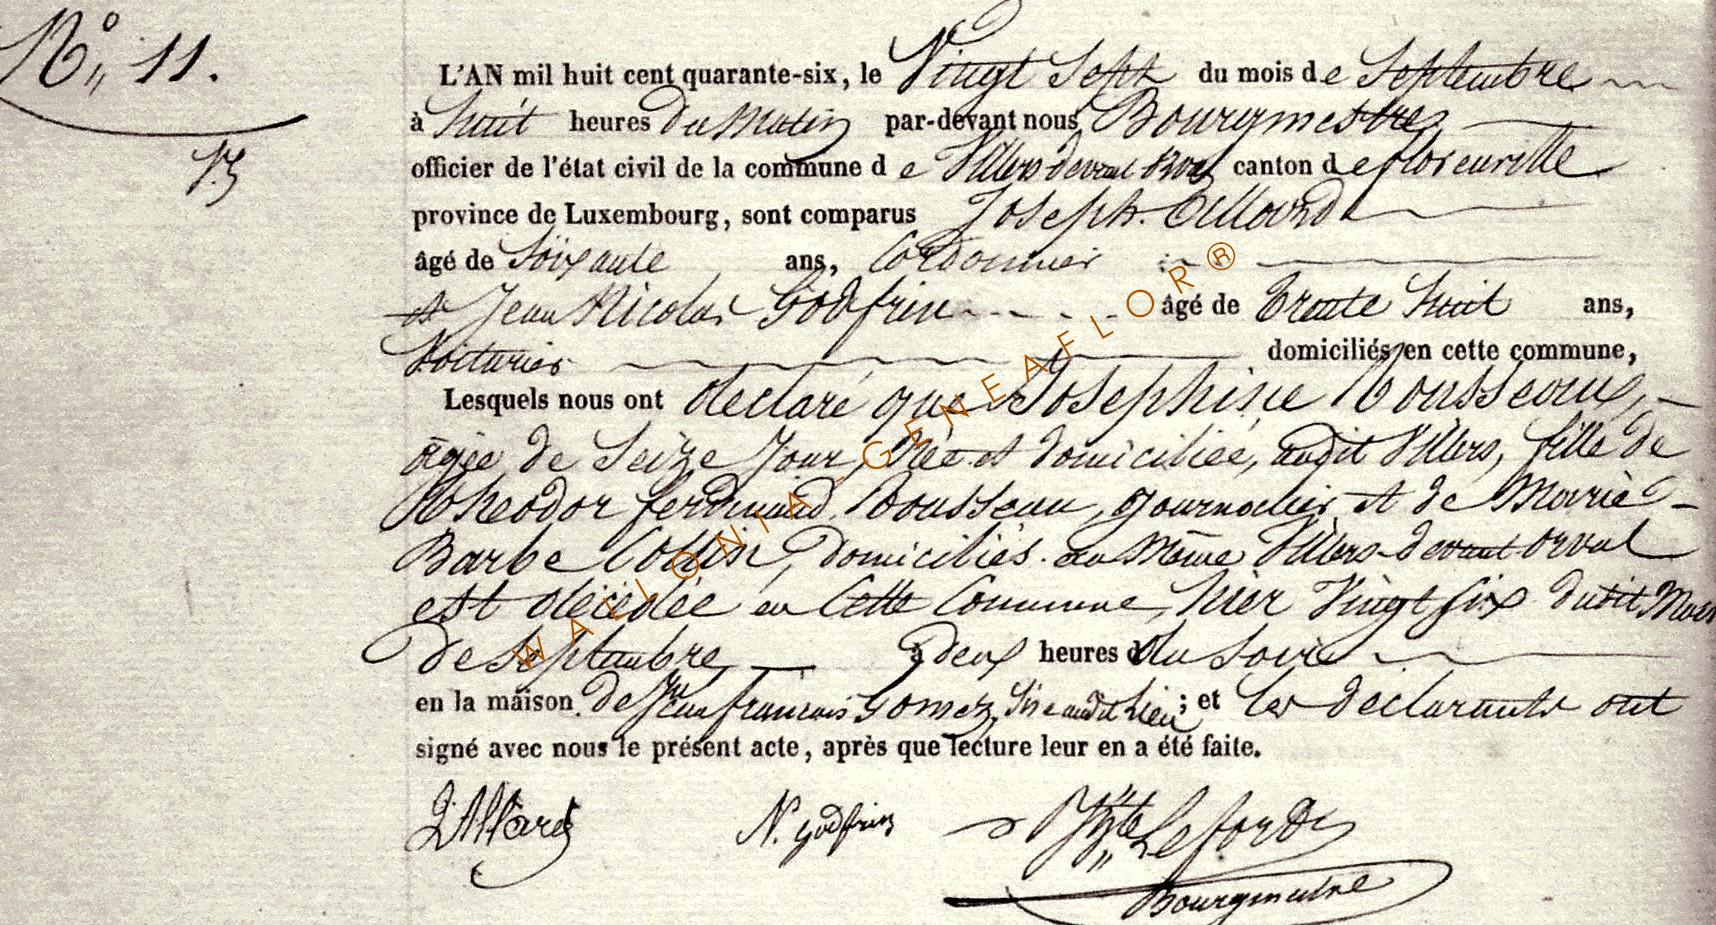 N° 11.
L'AN mil huit cent quarante-six, le Vingt Sept du mois de Septembre
à huit heures du Matin par-devant nous Bourgmestre
officier de l'état civil de la commune de Villers devant Orval canton de florenville
province de Luxembourg, sont comparus Joseph
âgé de Soixante ans, Cordonnier
et Jean Nicolas Godfrin âgé de trente huit ans,
Voiturier domiciliés en cette commune,
Lesquels nous ont déclaré que Josephine Rousseaux,
agée de Seize Jour, Née et domiciliée, audit Villers, fille de
Theodor ferdinand Rousseau, journalier et de Marie
Barbe Collin, domiciliés au Même Villers-devant Orval
est décédée en Cette Commune, hier Vingt six dudit Mois
de Septembre à deux heures du Soir
en la maison de Jean françois Gomez, Sise audit Lieu ; et les déclarants ont
signé avec nous le présent acte, après que lecture leur en a été faite.
N. Godfrin
Bourgmestre
WALLONIA - GENEAFLOR®